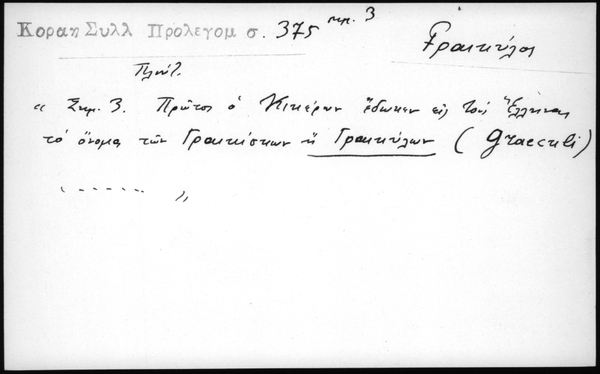 Κοραη Συλλ Προλεγομ σ. 375 σημ. 3
Γραικύλος
Πλουτ.
« Σημ. 3. Πρῶτος ὁ Κικέρων ἔδωκεν εἰς τοὺς Ἕλληνας
τὸ ὄνομα τῶν Γραικίσκων ἢ Γραικύλων (Graeculi)
. - - - - - - »